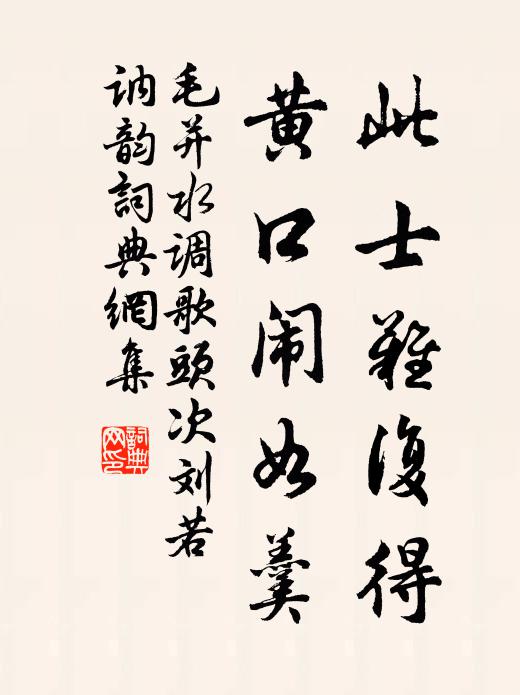 此士難復得
黄口闹如羹
毛并水调歌頭次刘若
讷韵詞典網集
詞典網印